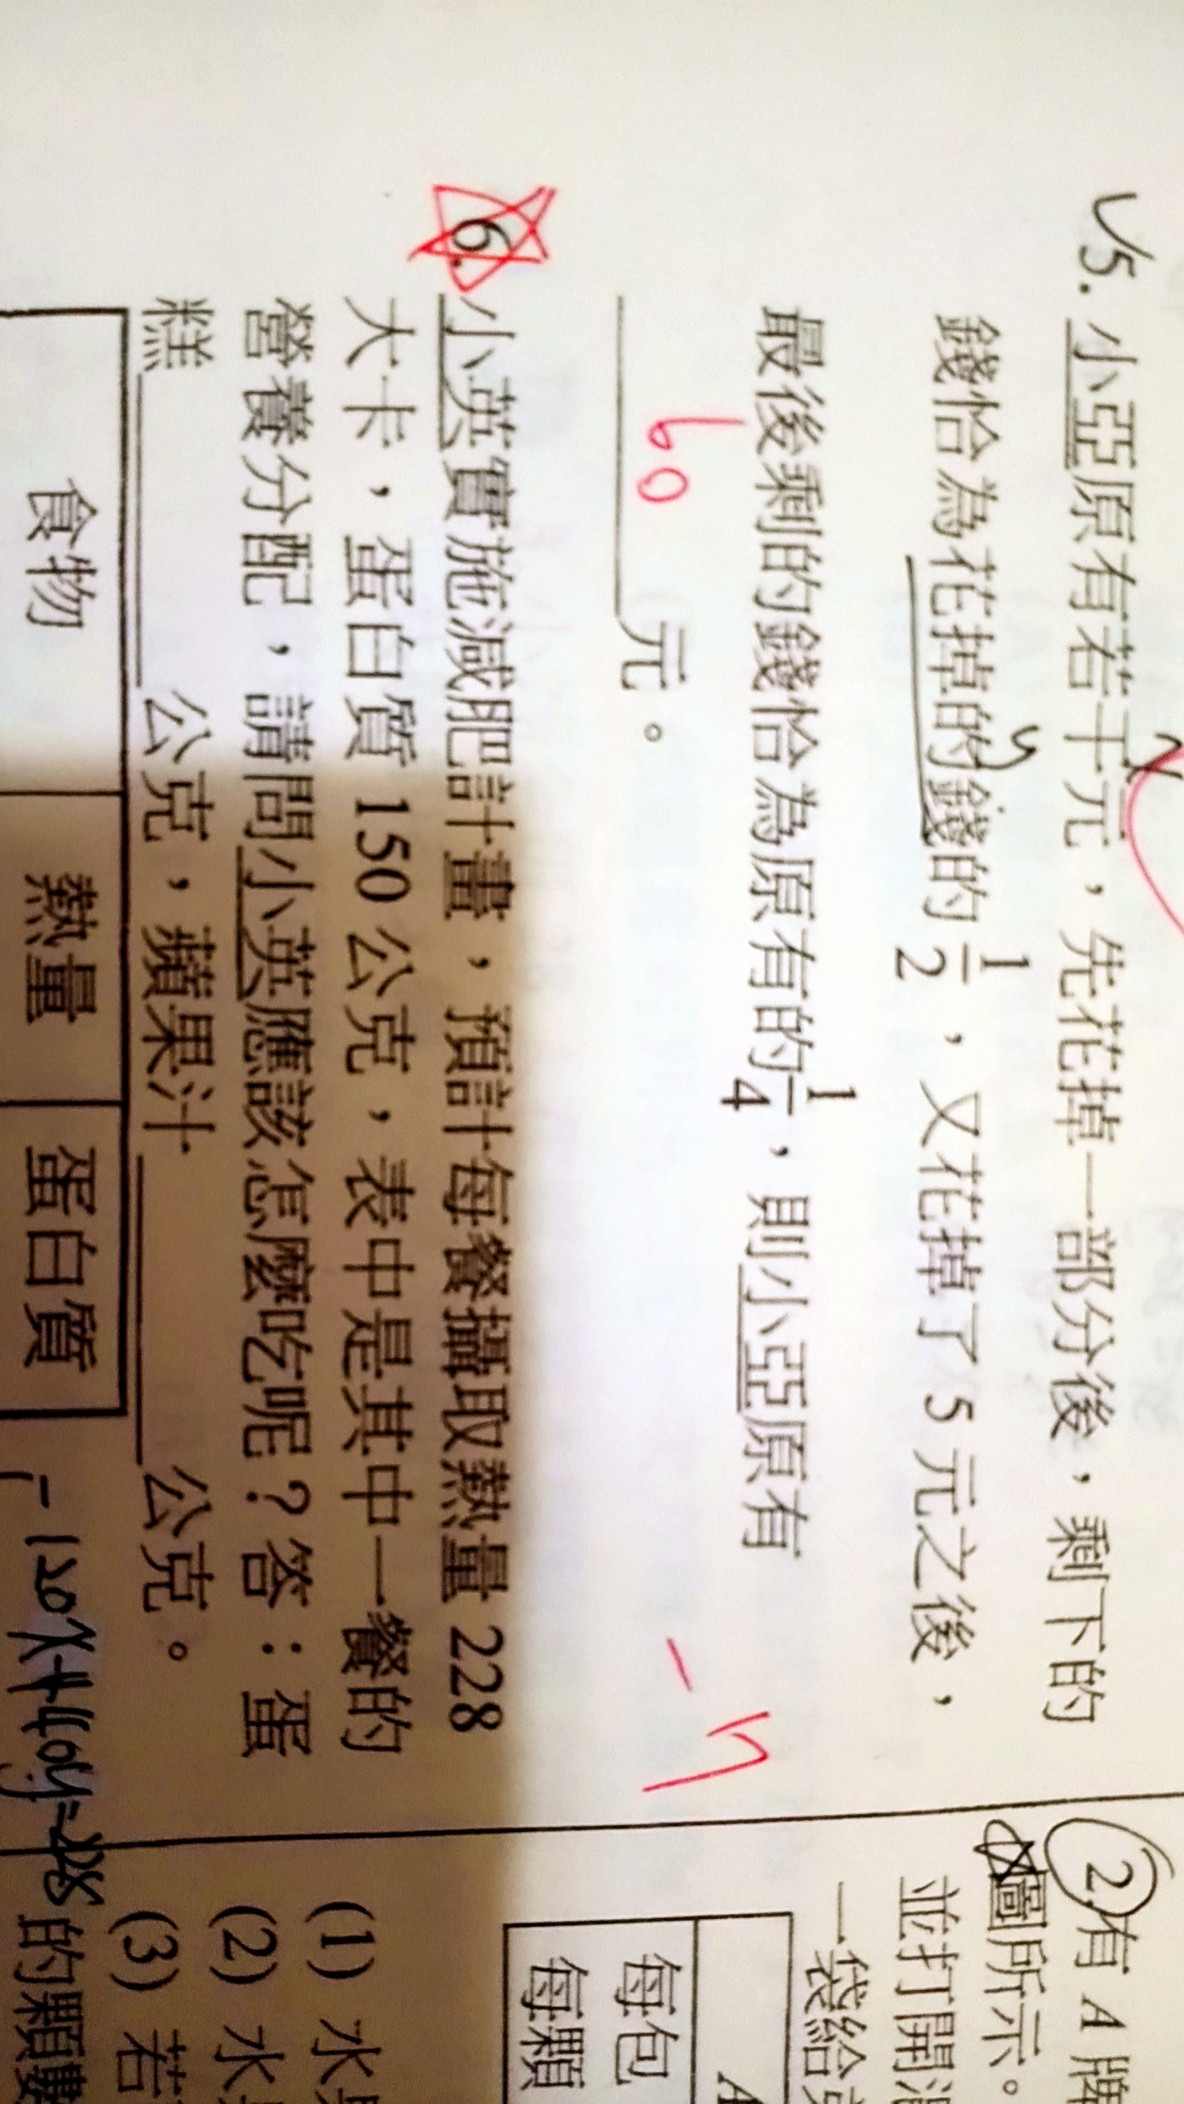 5. 小亞原有若干元，先花掉一部分後，剩下的
錢恰為花掉的錢的 1/2 ，又花掉了 5 元之後，
最後剩的錢恰為原有的 1/4 ，則小亞原有
60 元。
6. 小英實施減肥計畫，預計每餐攝取熱量 228
大卡，蛋白質 150 公克，表中是其中一餐的
營養分配，請問小英應該怎麼吃呢？答：蛋
糕 公克，蘋果汁 公克。
食物 熱量 蛋白質
2. 有 A 牌
圖所示。
並打開
一袋給
A
每包
每顆
(1) 水
(2) 水
(3) 若
的顆數